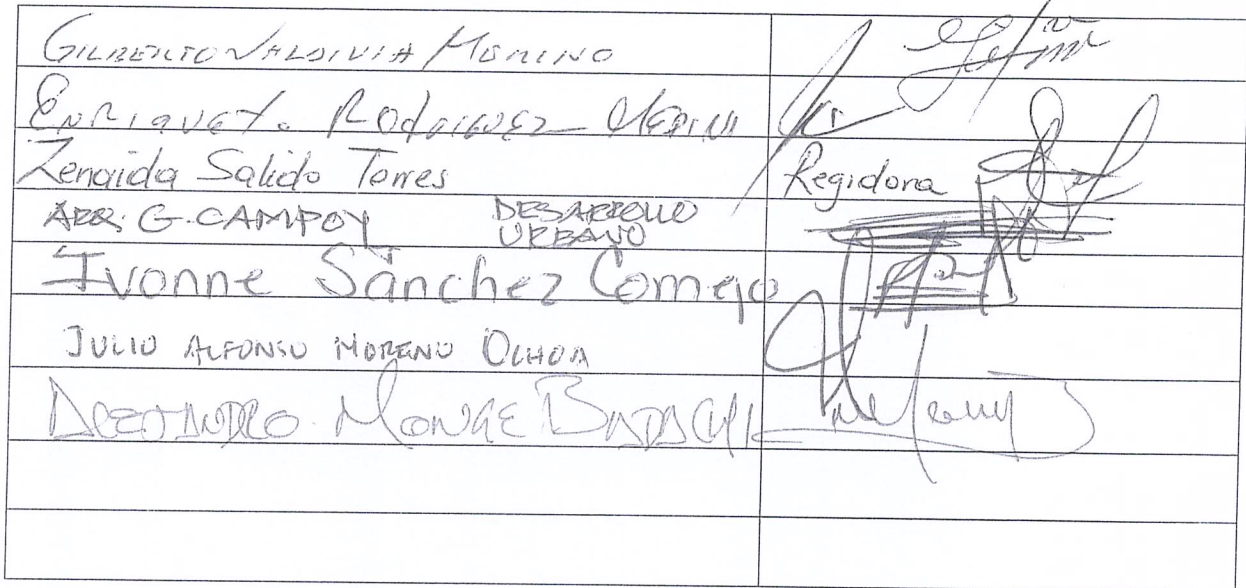 GILBERTO VALDIVIA MERINO
ENRIQUETA RODRIGUEZ MEDINA
Zenaida Salido Torres Regidora
ARQ. G. CAMPOY DESARROLLO URBANO
Ivonne Sánchez Cornejo
JULIO ALFONSO MORENO OCHOA
ALEJANDRO MONGE